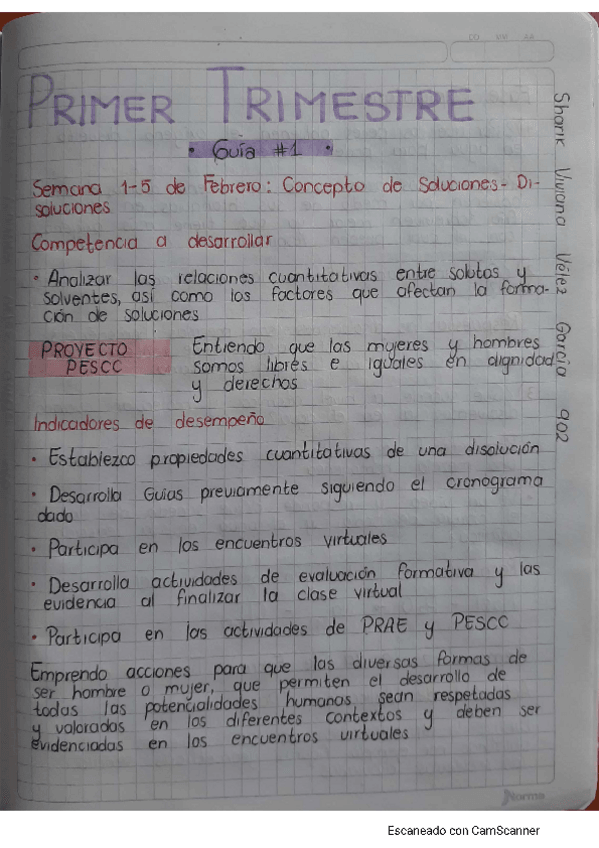 PRIMER TRIMESTRE
• Guía #1 •
Semana 1-5 de Febrero: Concepto de Soluciones- Di-
soluciones
Competencia a desarrollar
• Analizar las relaciones cuantitativas entre solutos y
solventes, así como los factores que afectan la forma-
ción de soluciones
PROYECTO
PESCC
Entiendo que las mujeres y hombres
somos libres e iguales en dignidad
y derechos
Indicadores de desempeño
• Establezco propiedades cuantitativas de una disolución
• Desarrolla Guías previamente siguiendo el cronograma
dado
• Participa en los encuentros virtuales
• Desarrolla actividades de evaluación formativa y las
evidencia al finalizar la clase virtual
• Participa en las actividades de PRAE y PESCC
Emprendo acciones para que las diversas formas de
ser hombre o mujer, que permiten el desarrollo de
todas las potencialidades humanas sean respetadas
y valoradas en los diferentes contextos y deben ser
evidenciadas en los encuentros virtuales
Sharik Viviana Vélez García 902
Norma
Escaneado con CamScanner